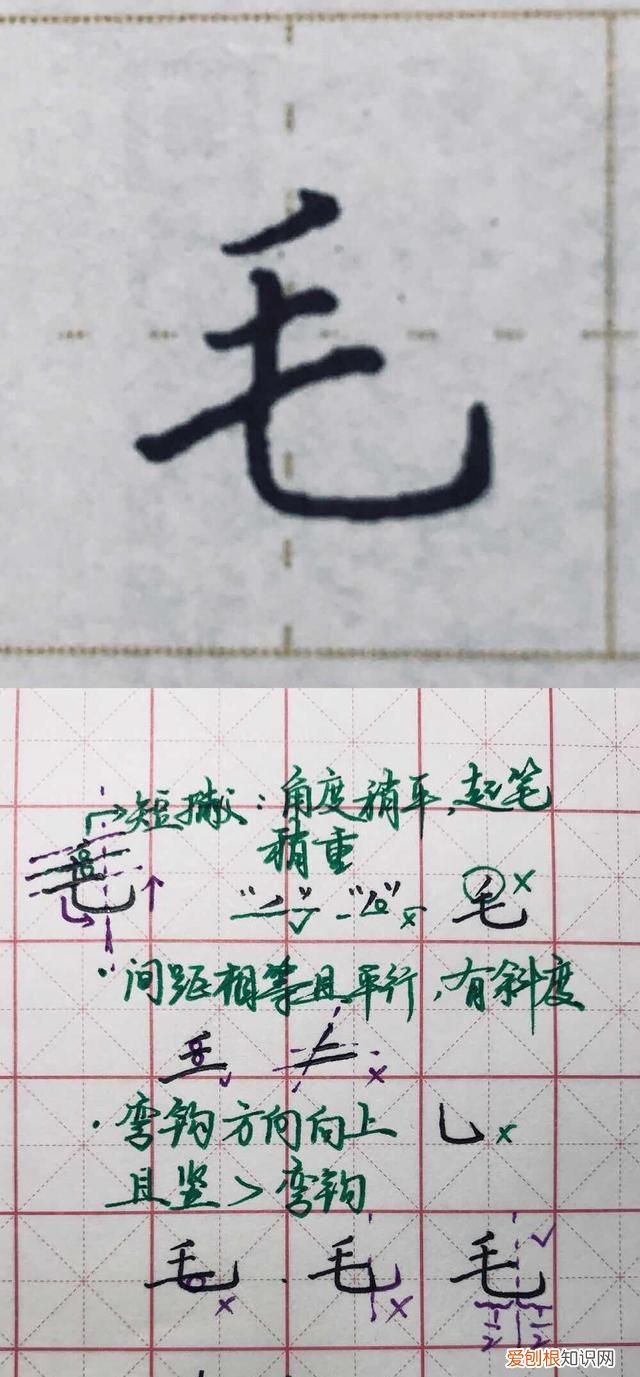 毛
短撇：角度稍平，起笔
稍重
毛
"㇒"✓ "㇒"× 毛×
·间距相等且平行，有斜度
✓ ×
·弯钩方向向上 乚×
且竖>弯钩
毛× 毛× 毛✓
1/2 1/2
爱刨根知识网